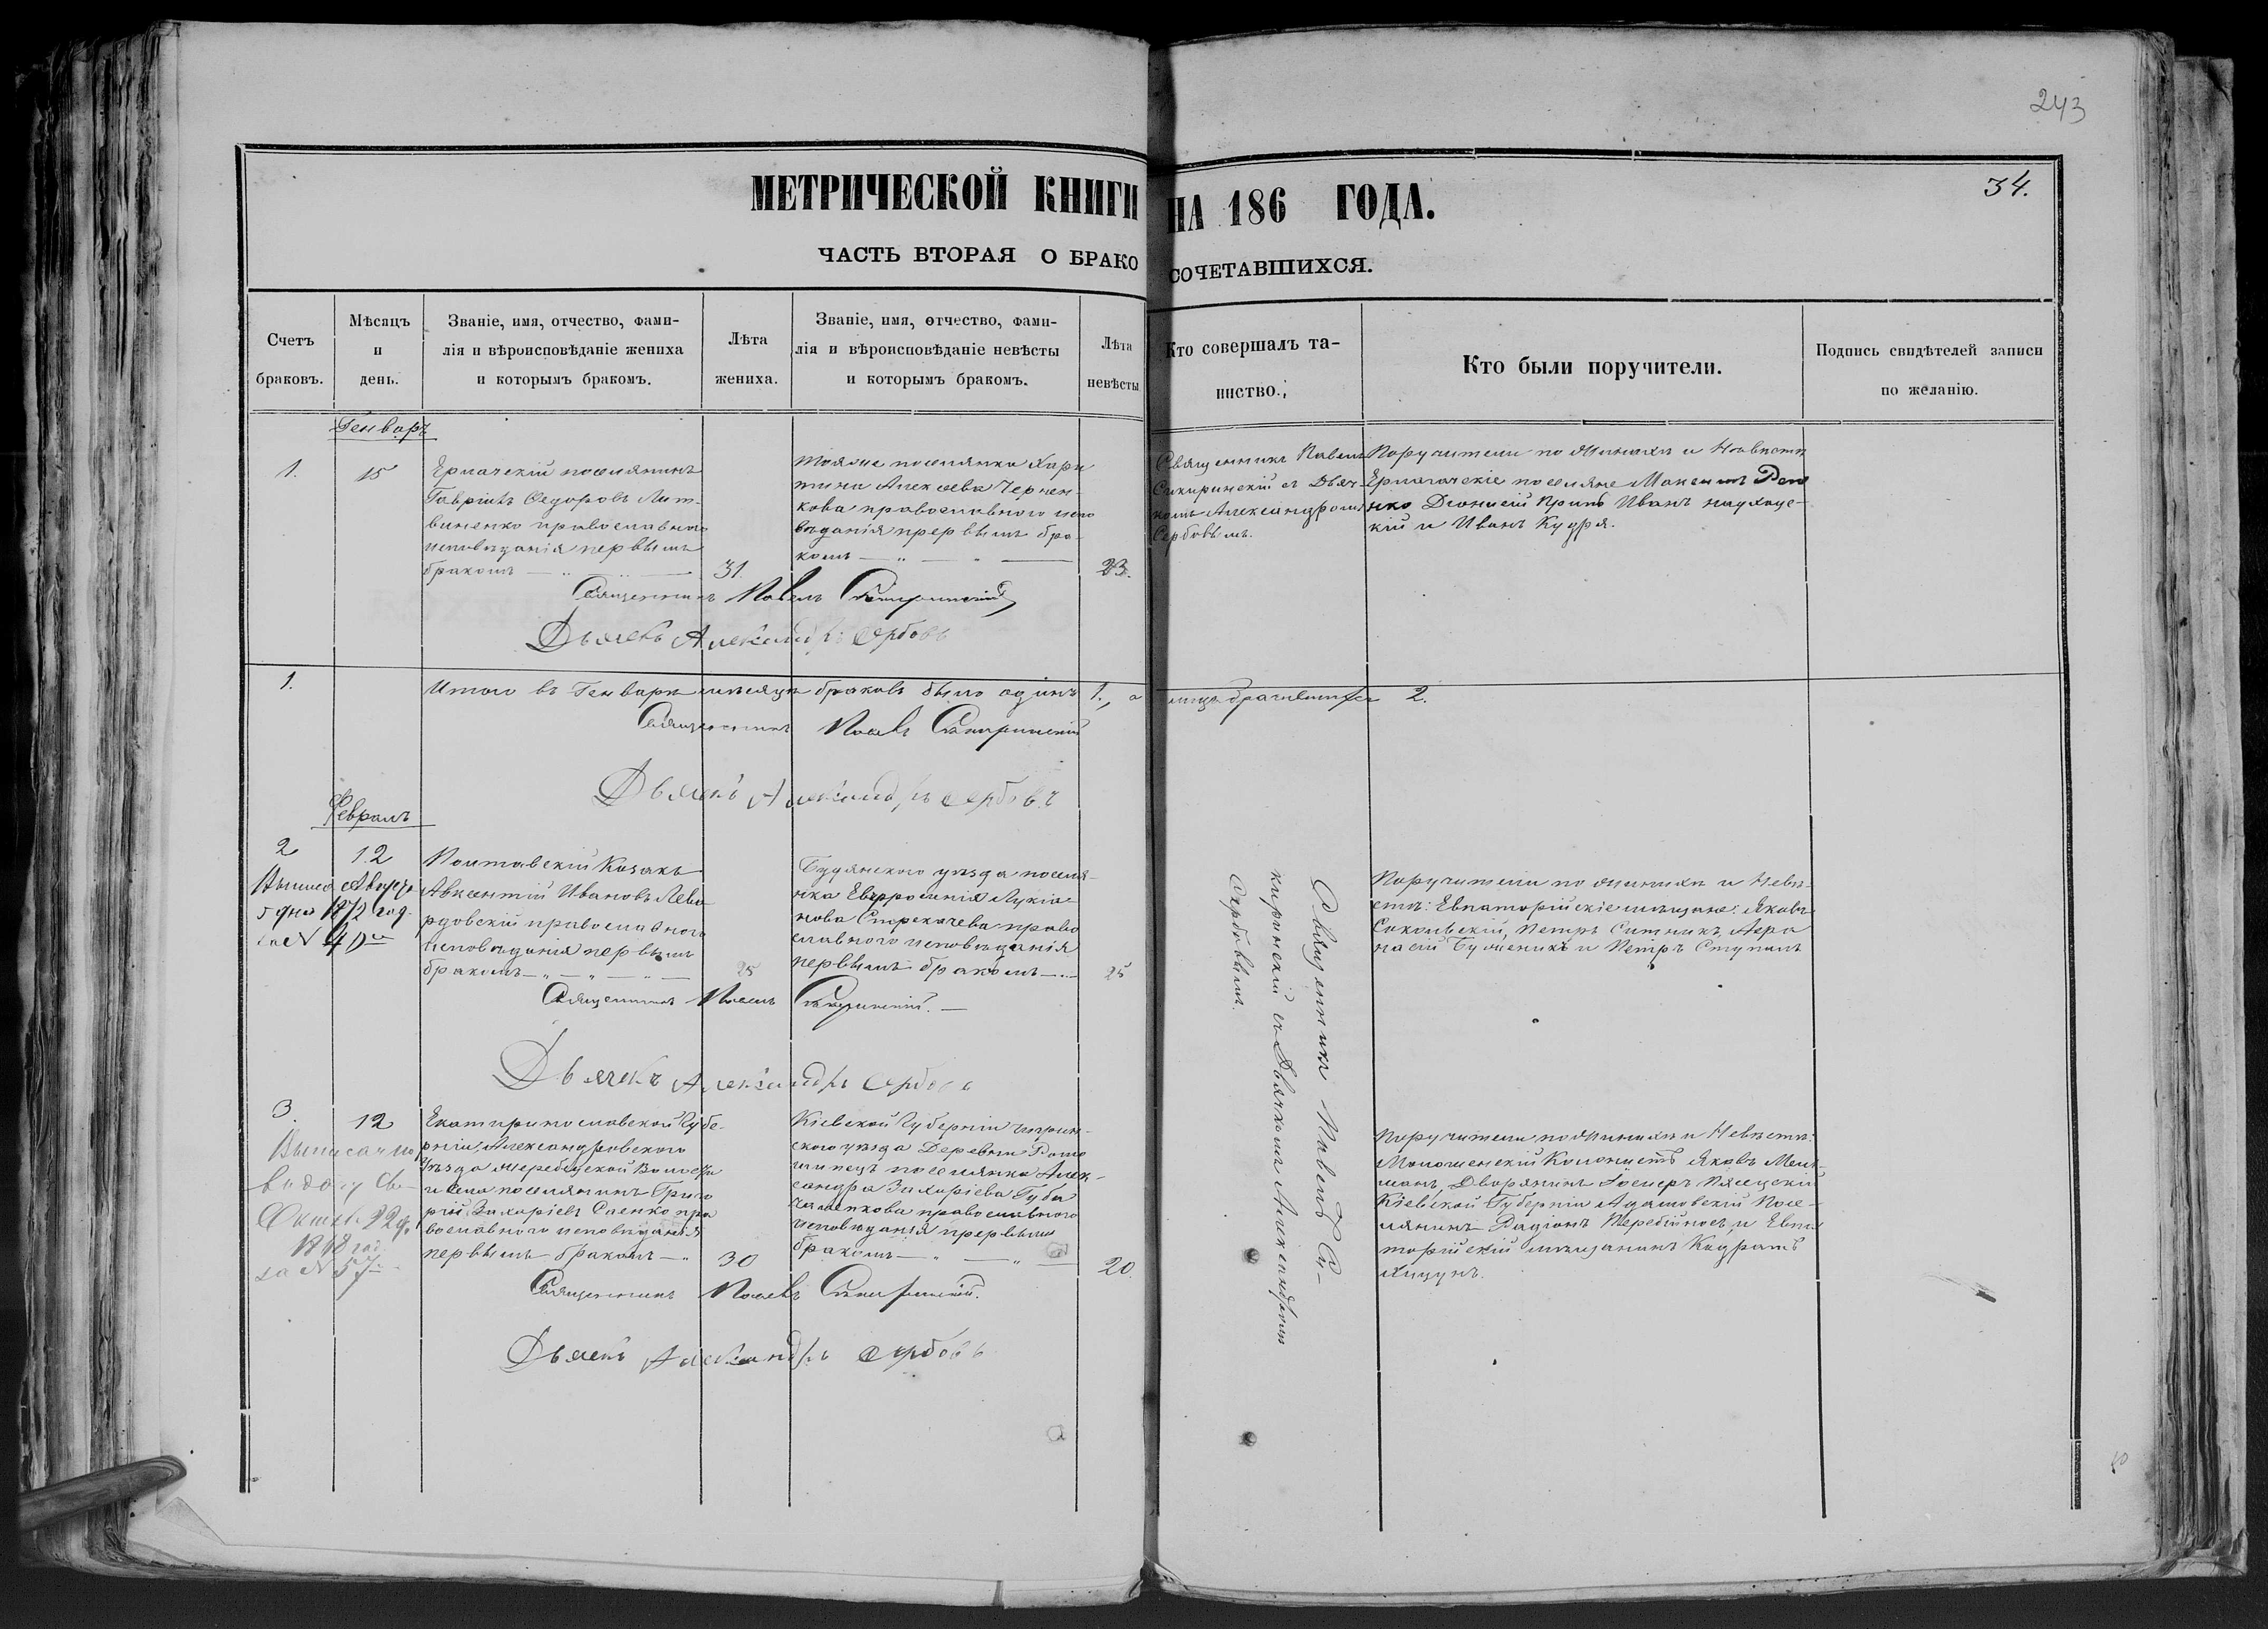 243
34.
МЕТРИЧЕСКОЙ КНИГИ НА 186 ГОДА.
ЧАСТЬ ВТОРАЯ О БРАКОСОЧЕТАВШИХСЯ.
Счетъ
браковъ.
Мѣсяцъ
и
день.
Званіе, имя, отчество, фами-
лія и вѣроисповѣданіе жениха
и которымъ бракомъ.
Лѣта
жениха.
Званіе, имя, отчество, фами-
лія и вѣроисповѣданіе невѣсты
и которымъ бракомъ.
Лѣта
невѣсты
Кто совершалъ та-
инство.
Кто были поручители.
Подпись свидѣтелей записи
по желанію.
Генварь
1.
15
поселянинъ
Гавріилъ Федоровъ Лит-
виненко православнаго
исповѣданія первымъ
бракомъ
31.
тояже поселянка Хари
тина Алексѣева Чернен-
кова православного испо
вѣданія прервымъ бра-
комъ
23.
Священникъ Павелъ
Сикиринскій съ Дьяч-
комъ Александромъ
Сербовымъ.
Поручители по женихѣ и Невѣстѣ
поселяне Максимъ
Дионисій Иванъ
кій и Иванъ Кудря.
Священникъ Павелъ Сикиринскій
Дьячекъ Александръ Сербовъ
1.
Итого въ Генварѣ мѣсяцѣ браковъ было одинъ 1., а лица брачившихся 2.
Священникъ Павелъ Сикиринскій
Дьячекъ Александръ Сербовъ
Февраль
2
12
5 дня 1872 год.
за N 4
Полтавскій Козакъ
Авксентій Ивановъ Лево
рдовскій православного
исповѣданія первымъ
бракомъ
25
уѣзда поселя-
нка Евфросинія Лукіа-
нова православного исповѣданія
первымъ бракомъ
25
Священникъ Павелъ Си-
киринскій съ Дьячкомъ Александромъ
Сербовымъ.
Поручители по женихѣ и Невѣ-
стѣ: Евпаторійскіе мѣщане: Яковъ
Соколвскій, Петръ Ситникъ, Афа
насій и Петръ Ступакъ
Священникъ Павелъ Сикиринскій.
Дьячекъ Александръ Сербовъ
3.
12
Выписано
Октяб. 22 д.
1868 год
за N 57
Екатеринославской Губе-
рніи, Александровского
Уѣзда Жеребецкой Волости
и села поселянинъ Григо
рій Захаріевъ Саенко пра
вославного исповѣданія
первымъ бракомъ
30
Кіевской Губерніи
ского уѣзда Деревни
поселянка Алек-
сандра Захаріева
православного
исповѣданія прервымъ
бракомъ
20.
Поручители по женихѣ и Невѣстѣ:
Колонистъ Яковъ
Дворянинъ
Кіевской Губерніи Адамовскій Посе-
лянинъ Радіонъ и Евпа
торійскій мѣщанинъ Кодратъ
Священникъ Павелъ Сикиринскій.
Дьячекъ Александръ Сербовъ